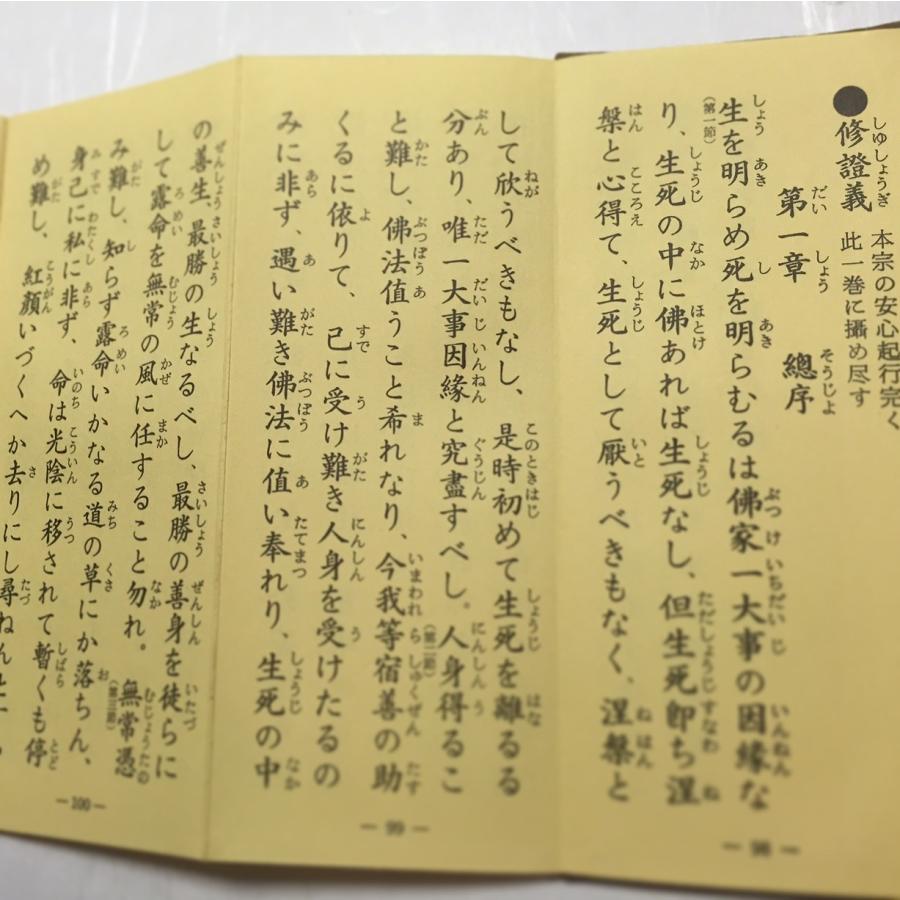 ●修證義 本宗の安心起行完く
此一巻に攝め尽す
第一章 總序
(第一節)
生を明らめ死を明らむるは佛家一大事の因縁な
り、生死の中に佛あれば生死なし、但生死即ち涅
槃と心得て、生死として厭うべきもなく、涅槃と
— 98 —
して欣うべきもなし、是時初めて生死を離るる
分あり、唯一大事因縁と究盡すべし。(第二節)人身得るこ
と難し、佛法値うこと希れなり、今我等宿善の助
くるに依りて、已に受け難き人身を受けたるの
みに非ず、遇い難き佛法に値い奉れり、生死の中
— 99 —
の善生、最勝の生なるべし、最勝の善身を徒らに
して露命を無常の風に任すること勿れ。(第三節)無常憑
み難し、知らず露命いかなる道の草にか落ちん、
身已に私に非ず、命は光陰に移されて暫くも停
め難し、紅顔いづくへか去りにし尋ねん
— 100 —